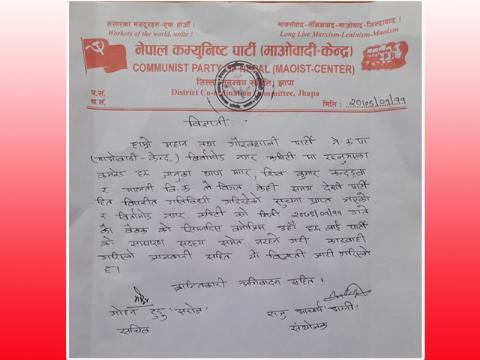 संसारका मजदुरहरु-एक होऔँ !
Workers of the world, unite !
मार्क्सवाद-लेनिनवाद-माओवाद-जिन्दावाद !
Long Live Marxism-Leninism-Maoism
नेपाल कम्युनिष्ट पार्टी (माओवादी-केन्द्र)
COMMUNIST PARTY OF NEPAL (MAOIST-CENTER)
जिल्ला समन्वय समिति, झापा
District Co-ordination Committee, Jhapa
प.सं.
च.सं.
मिति : २०७९/०९/११
विज्ञप्ती
हाम्रो महान तथा गौरवशाली पार्टी ने.क.पा
(माओवादी-केन्द्र) विर्तामोड नगर कमिटी मा रहनुभएका
कमरेड हरु मार, कुमार
र माल्ती वि.क ले विगत केही समय देखी पार्टी
हित विपरीत गतिविधी गरिरहेको सुचना प्राप्त भएको
र विर्तामोड नगर कमिटी को मिति २०७९/०९/११ गते
को बैठक को सिफारिस बमोजिम हरु लाई पार्टी
को साधारण सदस्य समेत नरहने गरी कारवाही
गरिएको जानकारी सहित यो विज्ञप्ती जारी गरिएको
छ।
क्रान्तिकारी अभिवादन सहित !
टुडु 'सरोज'
सचिव
राजु
संयोजक